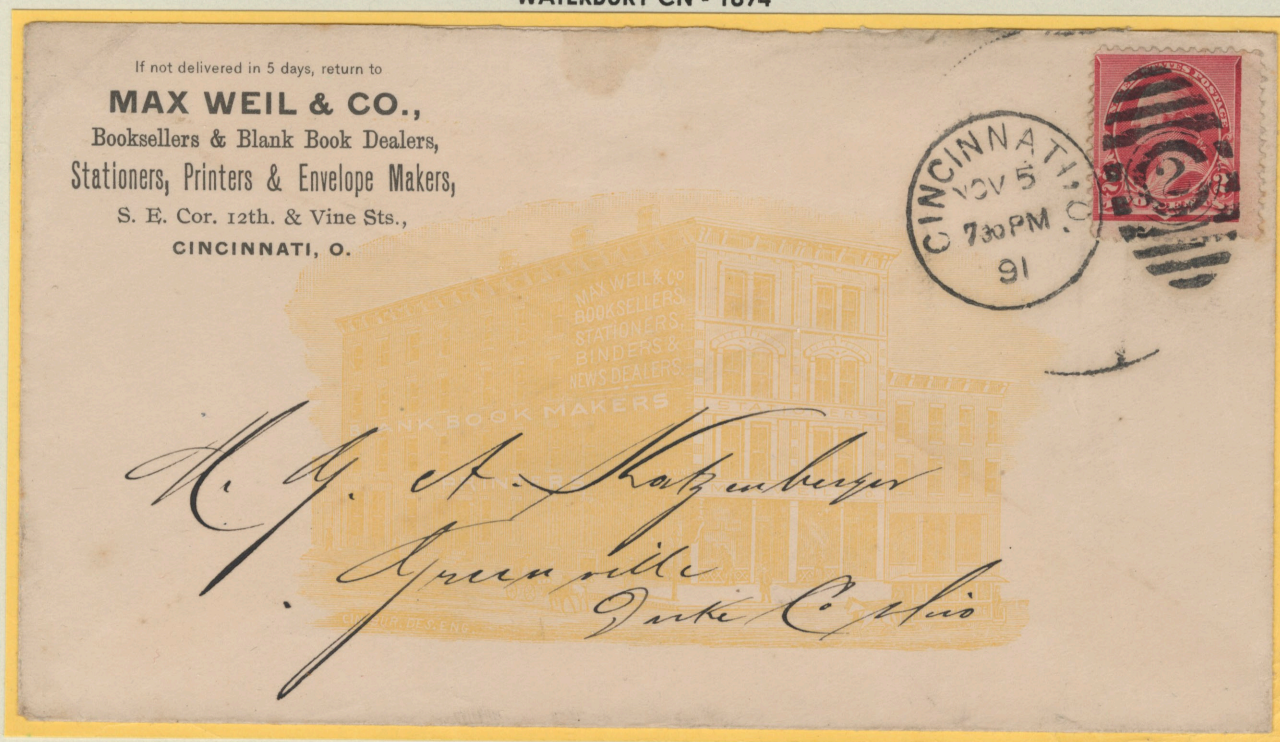 WATERBURY CN - 1894
If not delivered in 5 days, return to
MAX WEIL & CO.,
Booksellers & Blank Book Dealers,
Stationers, Printers & Envelope Makers,
S. E. Cor. 12th. & Vine Sts.,
CINCINNATI, O.
CINCINNATI, O.
NOV 5
730 PM
91
2
STATES POSTAGE
2 CENTS 2
MAX WEIL & CO
BOOKSELLERS,
STATIONERS,
BINDERS &
NEWS DEALERS.
BLANK BOOK MAKERS
M. G. A. Katzenberger
Greenville
Darke Co Ohio